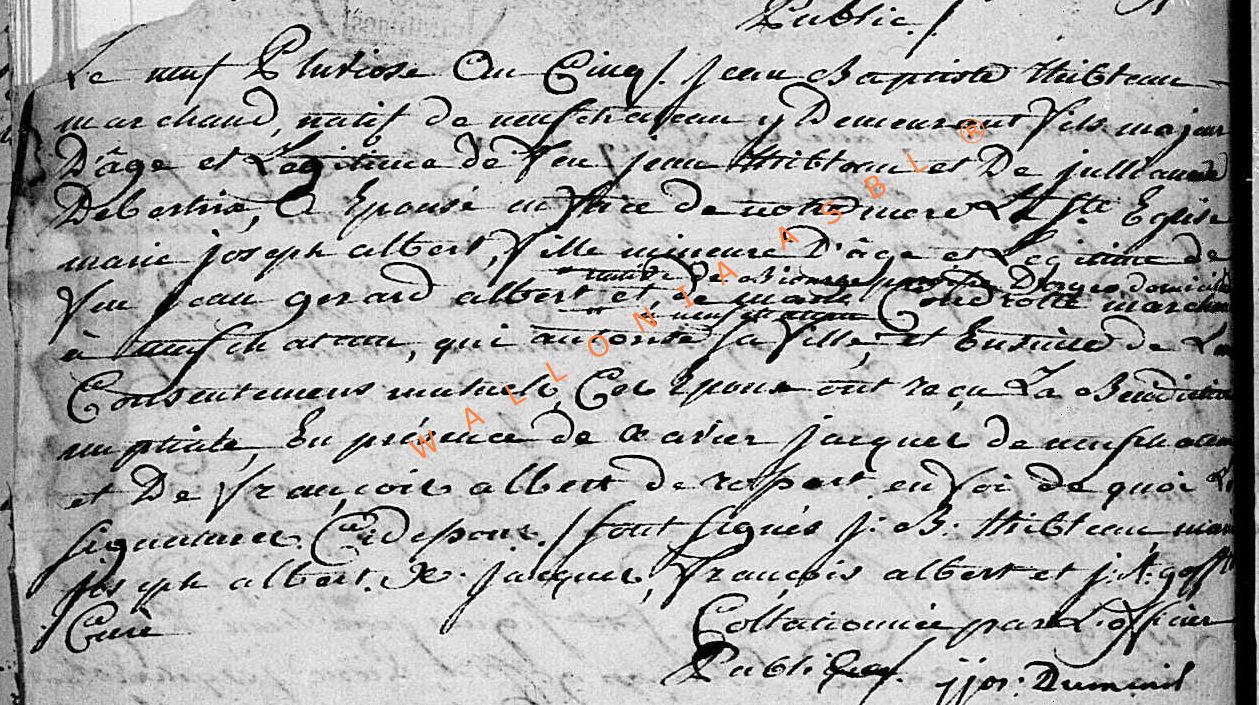 Public./
Le neuf Pluviose an Cinq/. jean Baptiste thibteau
marchand, natif de neufchateau y Demeurant fils majeur
D'âge et Legitime de feu jean thibteau et De jullienne
Debertrix, a Epousé en face de notre mere La Ste Eglise
marie joseph albert, fille mineure D'âge et Legitime de
native de
feu jean gerard albert et de marie marchand
à neufchateau, qui autorise sa fille, et Ensuite de
Consentemens mutuels, Ces Epoux ont reçu La Benediction
nuptiale, En présence de xavier jacques de neufchateau
et De françois albert de respart en foi de quoi
signatures Cidessous / sont signés j: B: thibteau
joseph albert. X. jacques, françois albert et j: A: goff
Curé
Collationnée par L'officier
Public
jjos: Dumenil
WALLONIA ASBL ®